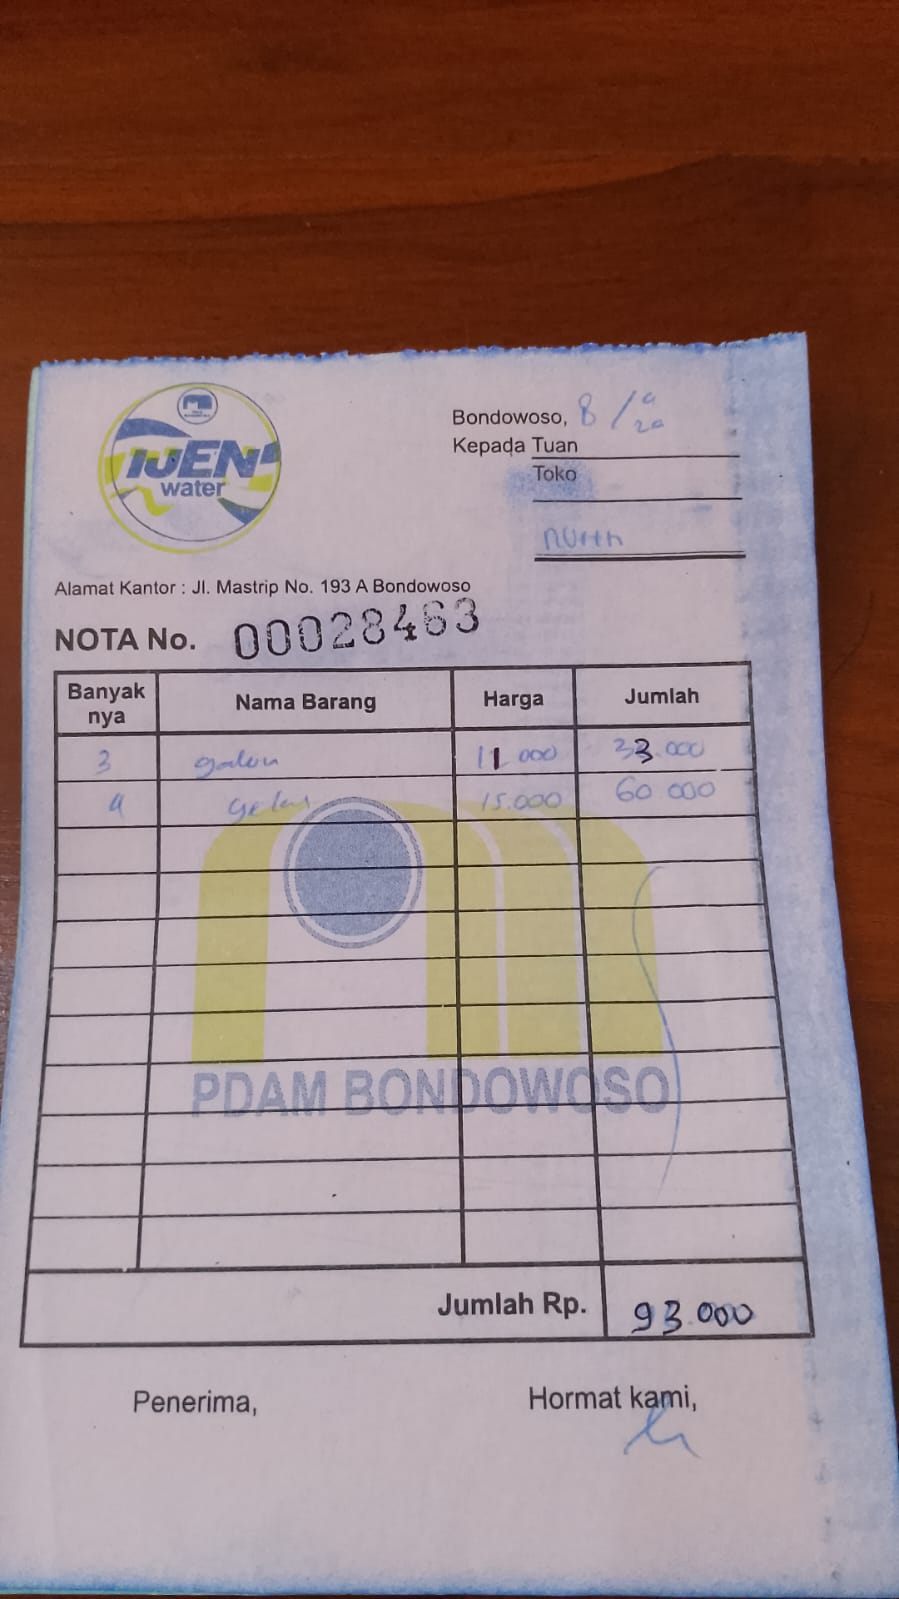 IJEN
water
Bondowoso, 8 /
Kepada Tuan
Toko
Alamat Kantor : Jl. Mastrip No. 193 A Bondowoso
NOTA No. 00028463
Banyak nya Nama Barang Harga Jumlah
3 galon 11.000 33.000
4 gelas 15.000 60 000
PDAM BONDOWOSO
Jumlah Rp. 93.000
Penerima, Hormat kami,